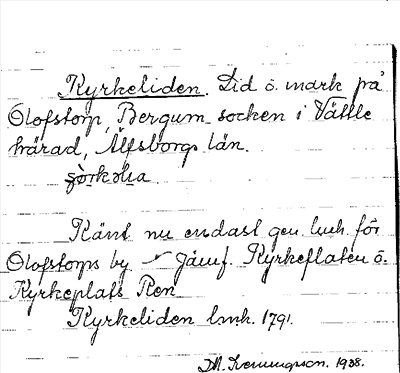 Kyrkeliden. Lid o. mark på
Olofstorp, Bergum socken i Vättle
härad, Älfsborgs län.
Känt nu endast gen. lmh. för
Olofstorps by – Jämf. Kyrkeflaten o.
Kyrkeplats Ren
Kyrkeliden lmh. 1791.
1938.